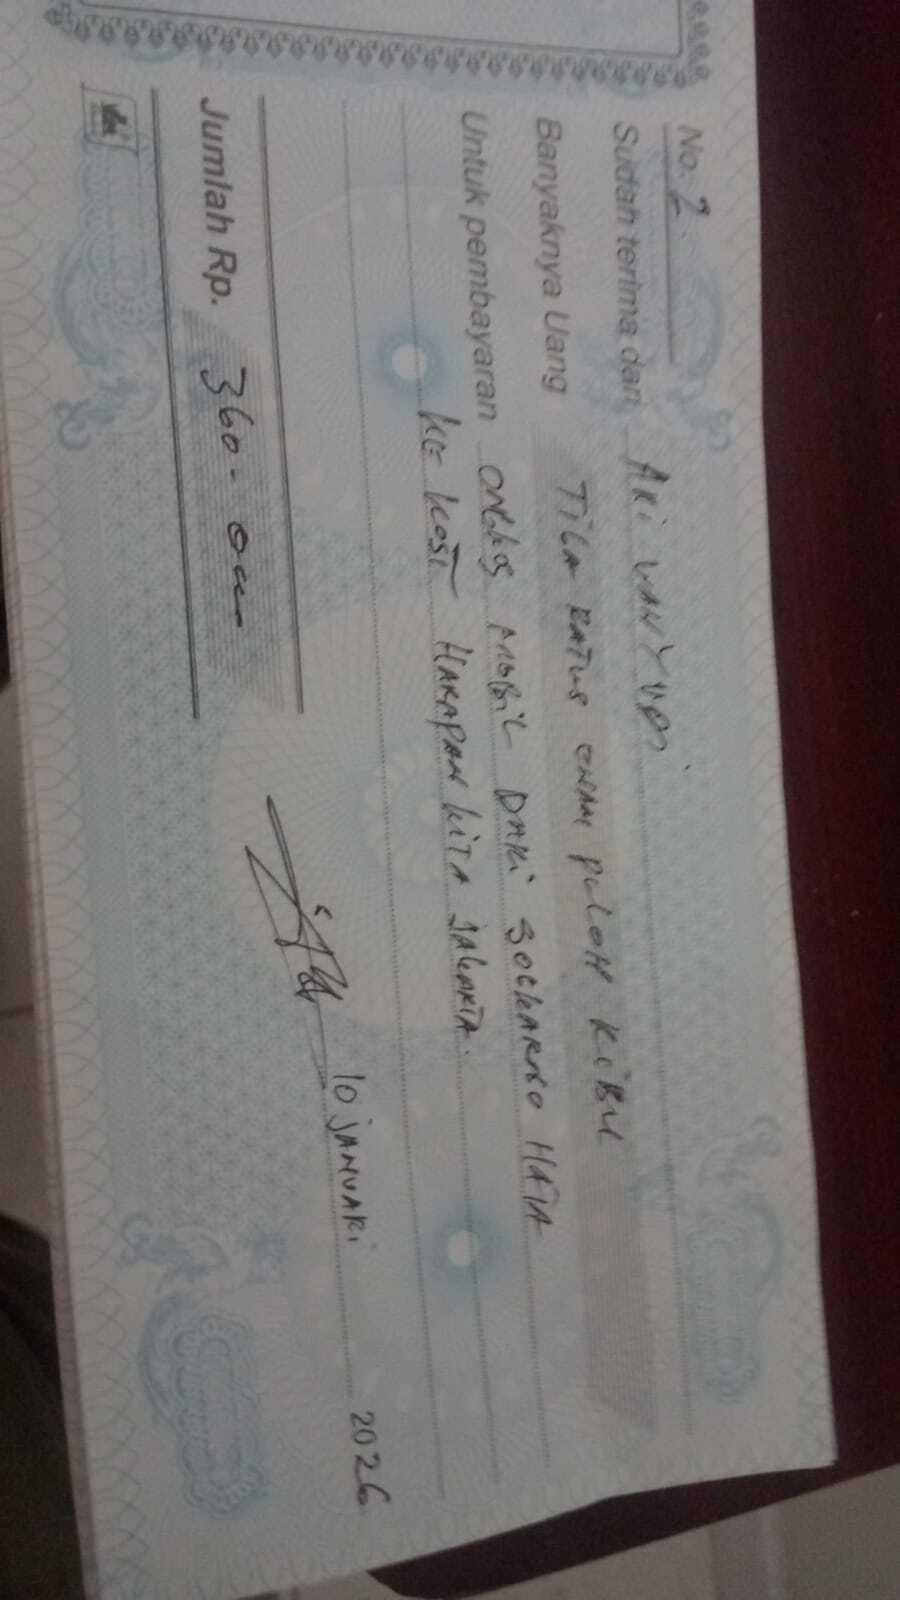 No. 2
Sudah terima dari ARI WAHYUDI
Banyaknya Uang TIGA RATUS ENAM PULOH RIBU
Untuk pembayaran ONGKOS MOBIL DARI SOEKARNO HATTA
KE KOST HARAPAN KITA JAKARTA.
10 JANUARI 2026
Jumlah Rp. 360.000